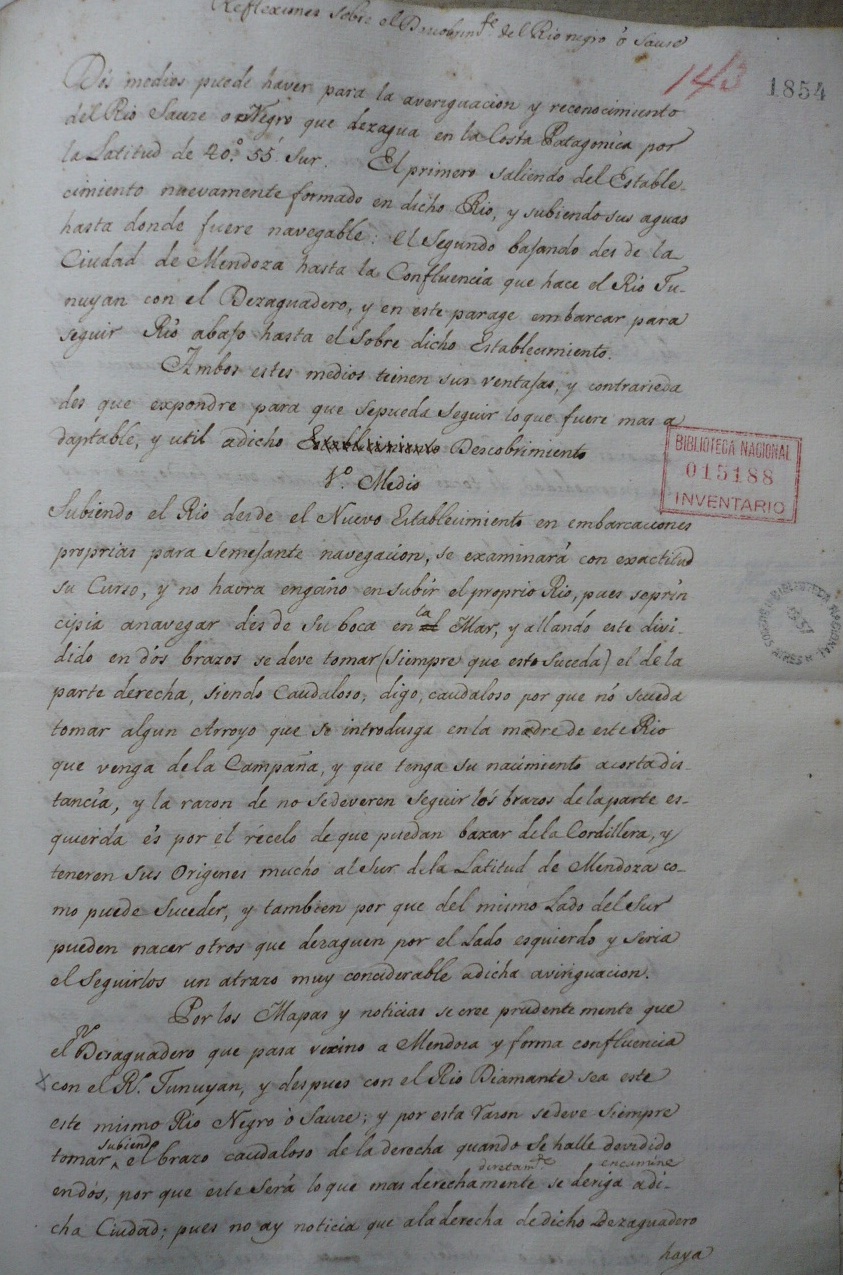 Reflexiones sobre el Descobrim.to del Rio negro ô Sauze
143
1854
Dos medios puede haver para la averiguacion y reconocimiento
del Rio Sauze o Negro que dezagua en la Costa Patagonica por
la Latitud de 40.° 55' Sur. El primero saliendo del Estable-
cimiento nuevamente formado en dicho Rio, y subiendo sus aguas
hasta donde fuere navegable: el Segundo bajando des de la
Ciudad de Mendoza hasta la Confluencia que hace el Rio Tu-
nuyan con el Dezaguadero, y en este parage embarcar para
seguir Rio abajo hasta el Sobre dicho Establecimiento.
Ambos estes medios tienen sus ventajas, y contrarieda
des que expondre para que sepueda Seguir lo que fuere mas a
daptable, y util adicho Establecimiento Descobrimiento
1.° Medio
Subiendo el Rio desde el Nuevo Establecimiento en embarcaciones
proprias para Semejante navegacion, se examinará con exactitud
su Curso, y no havra engaño en subir el proprio Rio, pues seprin
cipia anavegar des de Su boca en la el Mar, y allando este divi-
dido en dós brazos se deve tomar (Siempre que esto Suceda) el de la
parte derecha, siendo Caudaloso; digo, caudaloso por que nó sueda
tomar algun Arroyo que se introdusga en la madre de este Rio
que venga de la Campaña, y que tenga su nacimiento acorta dis-
tancia, y la razon de no sedeveren Seguir los brazos de la parte es-
quierda és por el récelo de que puedan baxar de la Cordillera, y
teneren Sus Origenes mucho al Sur de la Latitud de Mendoza co-
mo puede Suceder, y tambien por que del mismo Lado del Sur
pueden nacer otros que dezaguen por el Lado esquierdo y seria
el Seguirlos un atrazo muy conciderable adicha aviriguacion.
Por los Mapas y noticias se cree prudentemente que
el Dezaguadero que pasa vexino a Mendoza y forma confluencia
con el R.° Tunuyan, y despues con el Rio Diamante sea este
este mismo Rio Negro ô Sauze; y por esta razon sedeve Siempre
subiendo
tomar ^ el brazo caudaloso de la derecha quando se halle devidido
diretam.te encamine
endós, por que este Será lo que mas derechamente se deriga adi-
cha Ciudad; pues no ay noticia que ala derecha de dicho Dezaguadero
haya
BIBLIOTECA NACIONAL
015188
INVENTARIO